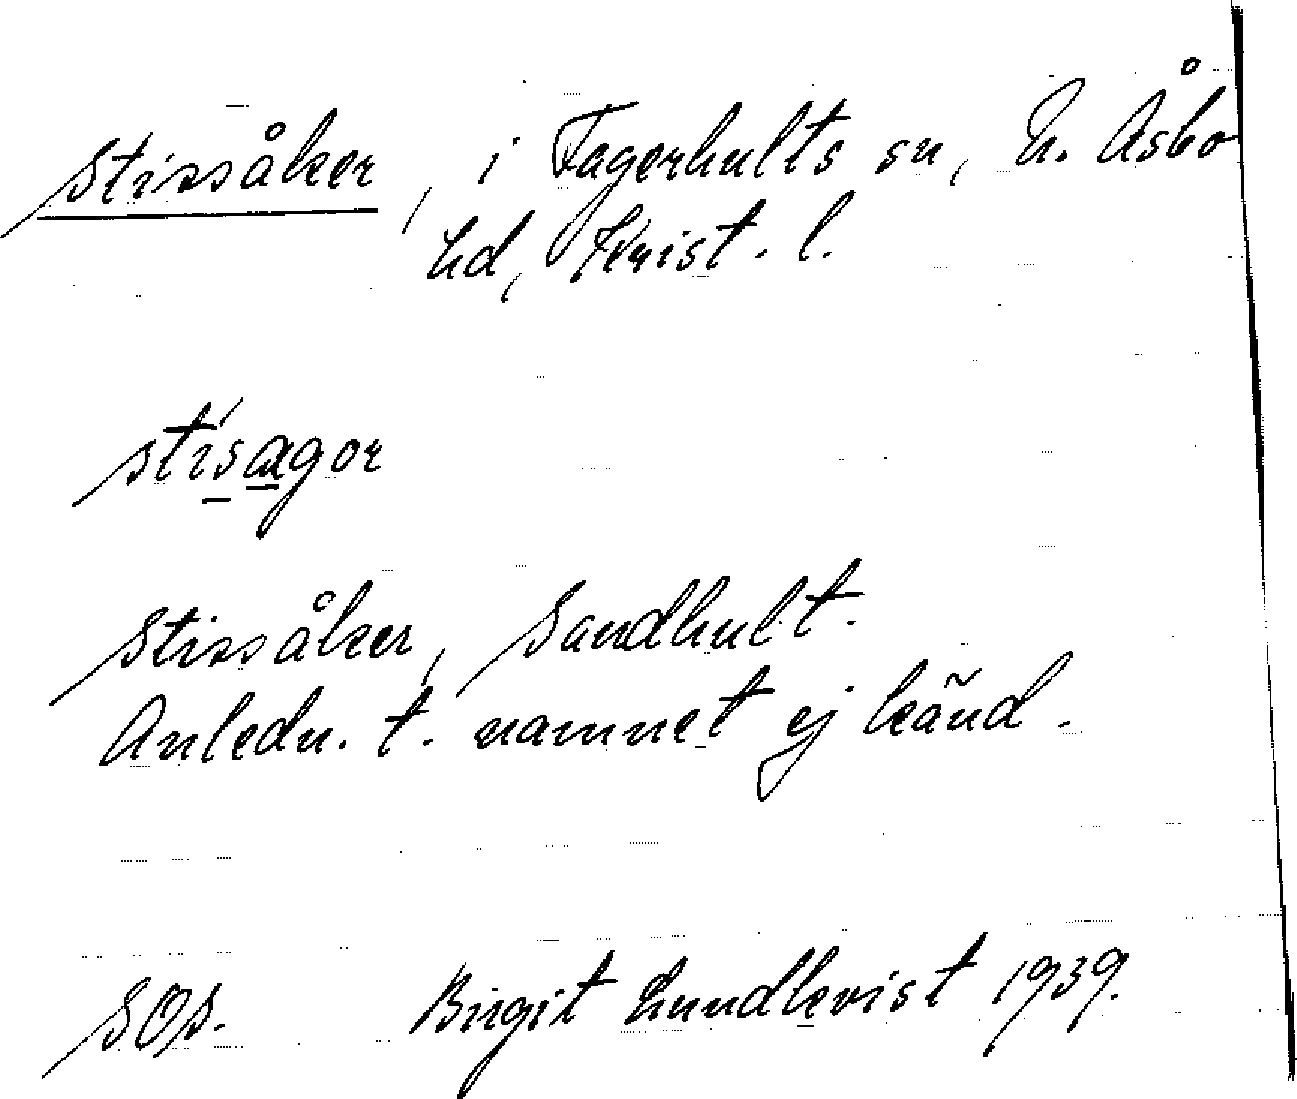 Stissåker, i Fagerhults sn, N. Åsbo
hd, Krist. l.
stisagor
Stissåker, Sandhult.
Anledn. t. namnet ej känd.
SOS. Birgit Lundkvist 1939.